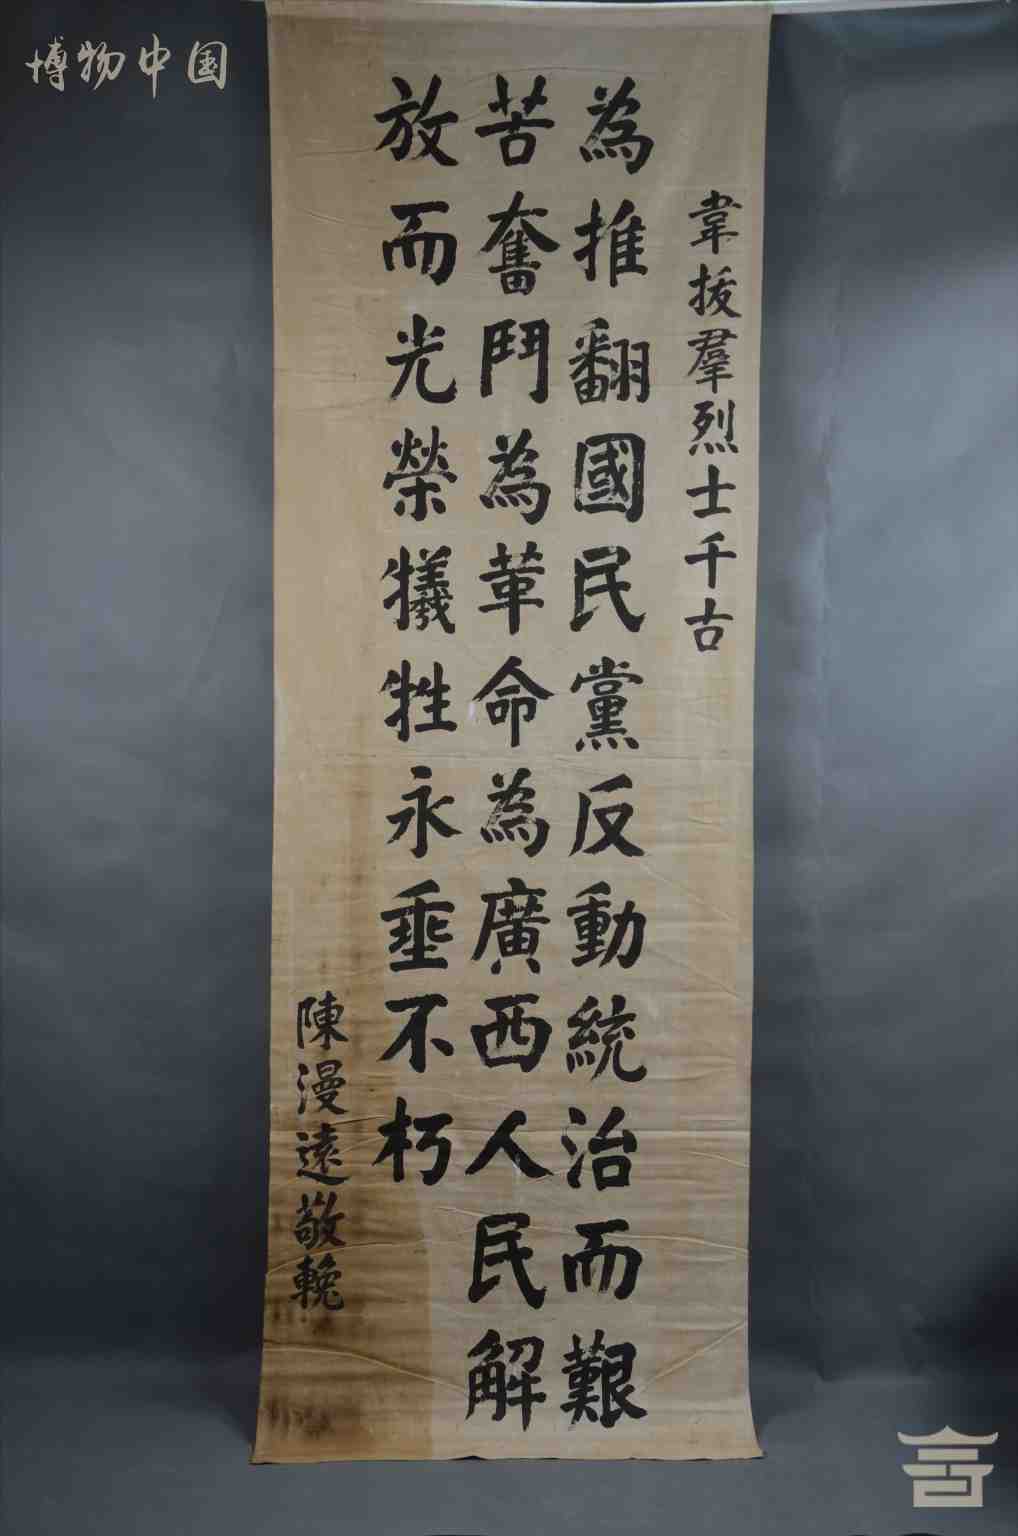 博物中国
韋拔羣烈士千古
為推翻國民黨反動統治而艱
苦奮鬥為革命為廣西人民解
放而光榮犧牲永垂不朽
陳漫遠敬輓